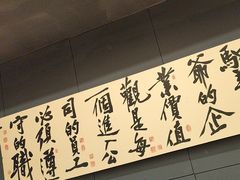 爺的企
業價值
觀是每
一個進入公
司的員工
必須遵
守的職